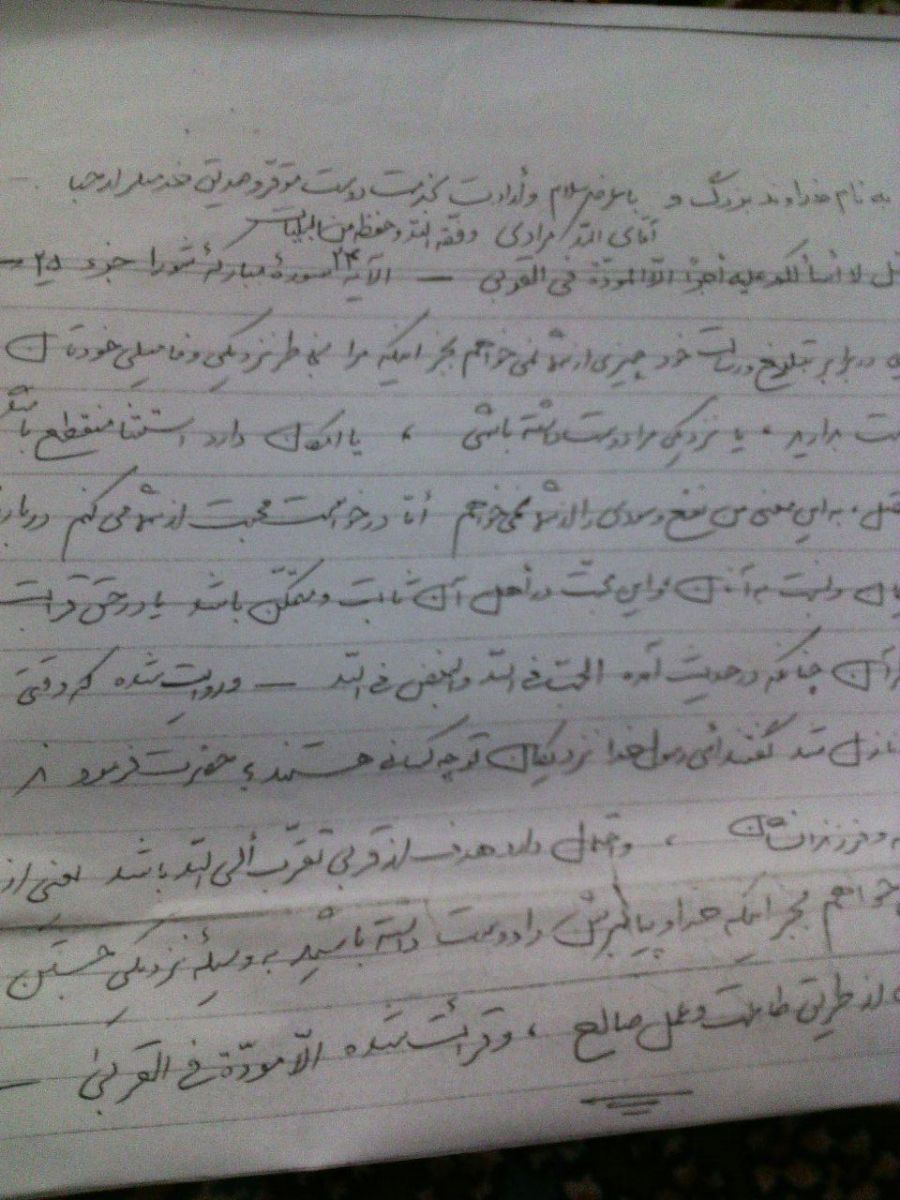 به نام خداوند بزرگ و با عرض سلام و ارادت خدمت دوست موقر و
آقای الله مرادی وفقه الله و حفظه من البلیات
قل لا أسألکم علیه أجرا الّا المودّة فی القربی – الآیه ۲۳ سورهٔ مبارکهٔ شورا جزء ۲۵
در برابر تبلیغ رسالت خود چیزی از شما نمی خواهم بجز اینکه مرا بخاطر نزدیکی و فامیلی خودتان
بدارید، یا نزدیکی مرا دوست داشته باشی، یا امکان دارد استثنا منقطع باشد
به این معنی من نفع و سودی را از شما نمی خواهم أمّا درخواست محبت از شما می کنم
و نسبت به آنان و این محبّت در أهل آن ثابت و متمکّن باشد یا در حق قرابت
چنانکه در حدیث آمده الحبّ فی الله والبغض فی الله – و روایت شده که وقتی
نازل شد گفتند أی رسول خدا نزدیکان تو چه کسانی هستند؟ حضرت فرمود:
و فرزندانشان، و احتمال دارد هدف از قربی تقرّب ألی الله باشد یعنی از
خواهم بجز اینکه خدا و پیامبرش را دوست داشته باشید به وسیلهٔ نزدیکی جستن
از طریق طاعت و عمل صالح، و قرائت شده الّا مودّة فی القربیٰ –